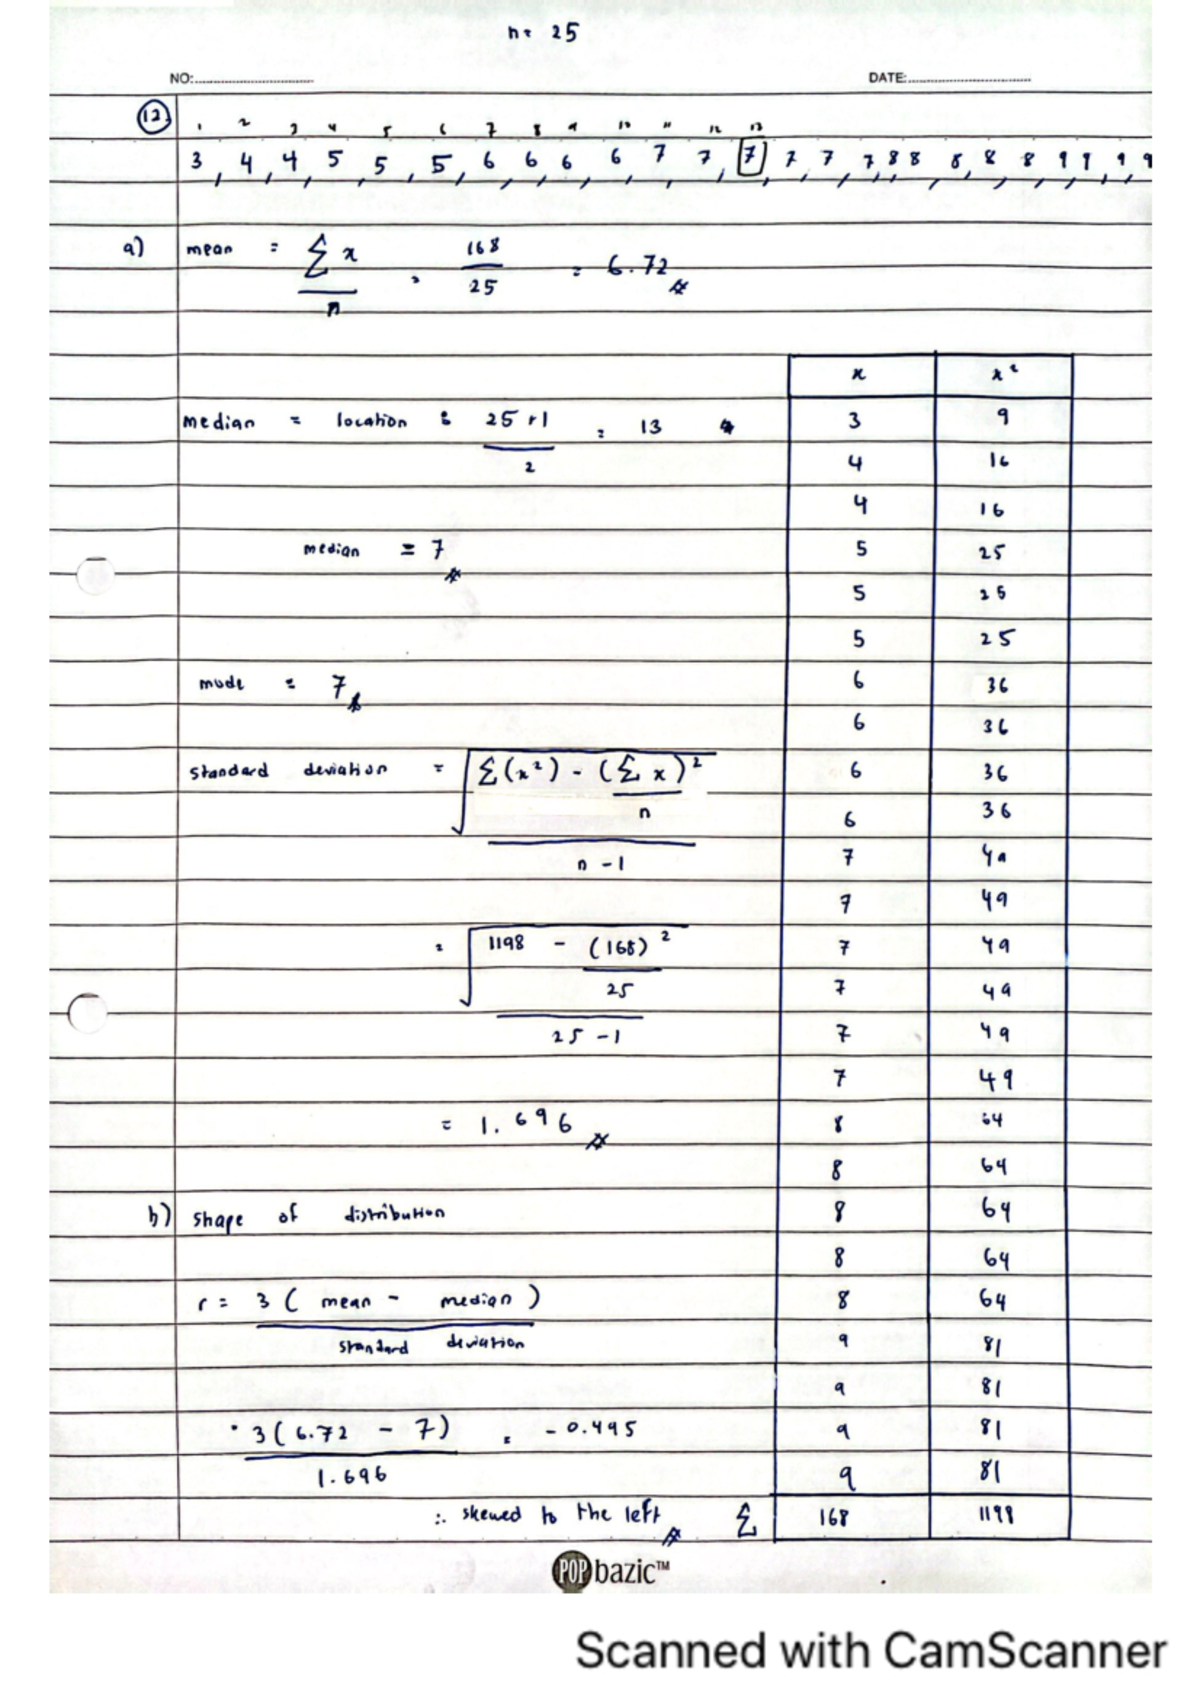 n = 25
NO:
DATE:
12)
1 2 3 4 5 6 7 8 9 10 11 12 13
3, 4, 4, 5, 5, 5, 6, 6, 6, 6, 7, 7, 7, 7, 7, 7, 8, 8, 8, 8, 8, 9, 9, 9, 9
a) mean = Σx / n = 168 / 25 = 6.72
median = location : 25 + 1 / 2 = 13
median = 7
mode = 7
standard deviation = √ Σ(x²) - (Σx)² / n / n - 1
= √ 1198 - (168)² / 25 / 25 - 1
= 1.696
b) shape of distribution
r = 3 ( mean - median ) / standard deviation
= 3 ( 6.72 - 7 ) / 1.696 = - 0.495
∴ skewed to the left
x x²
3 9
4 16
4 16
5 25
5 25
5 25
6 36
6 36
6 36
6 36
7 49
7 49
7 49
7 49
7 49
7 49
8 64
8 64
8 64
8 64
8 64
9 81
9 81
9 81
9 81
Σ 168 1198
POP bazic™
Scanned with CamScanner